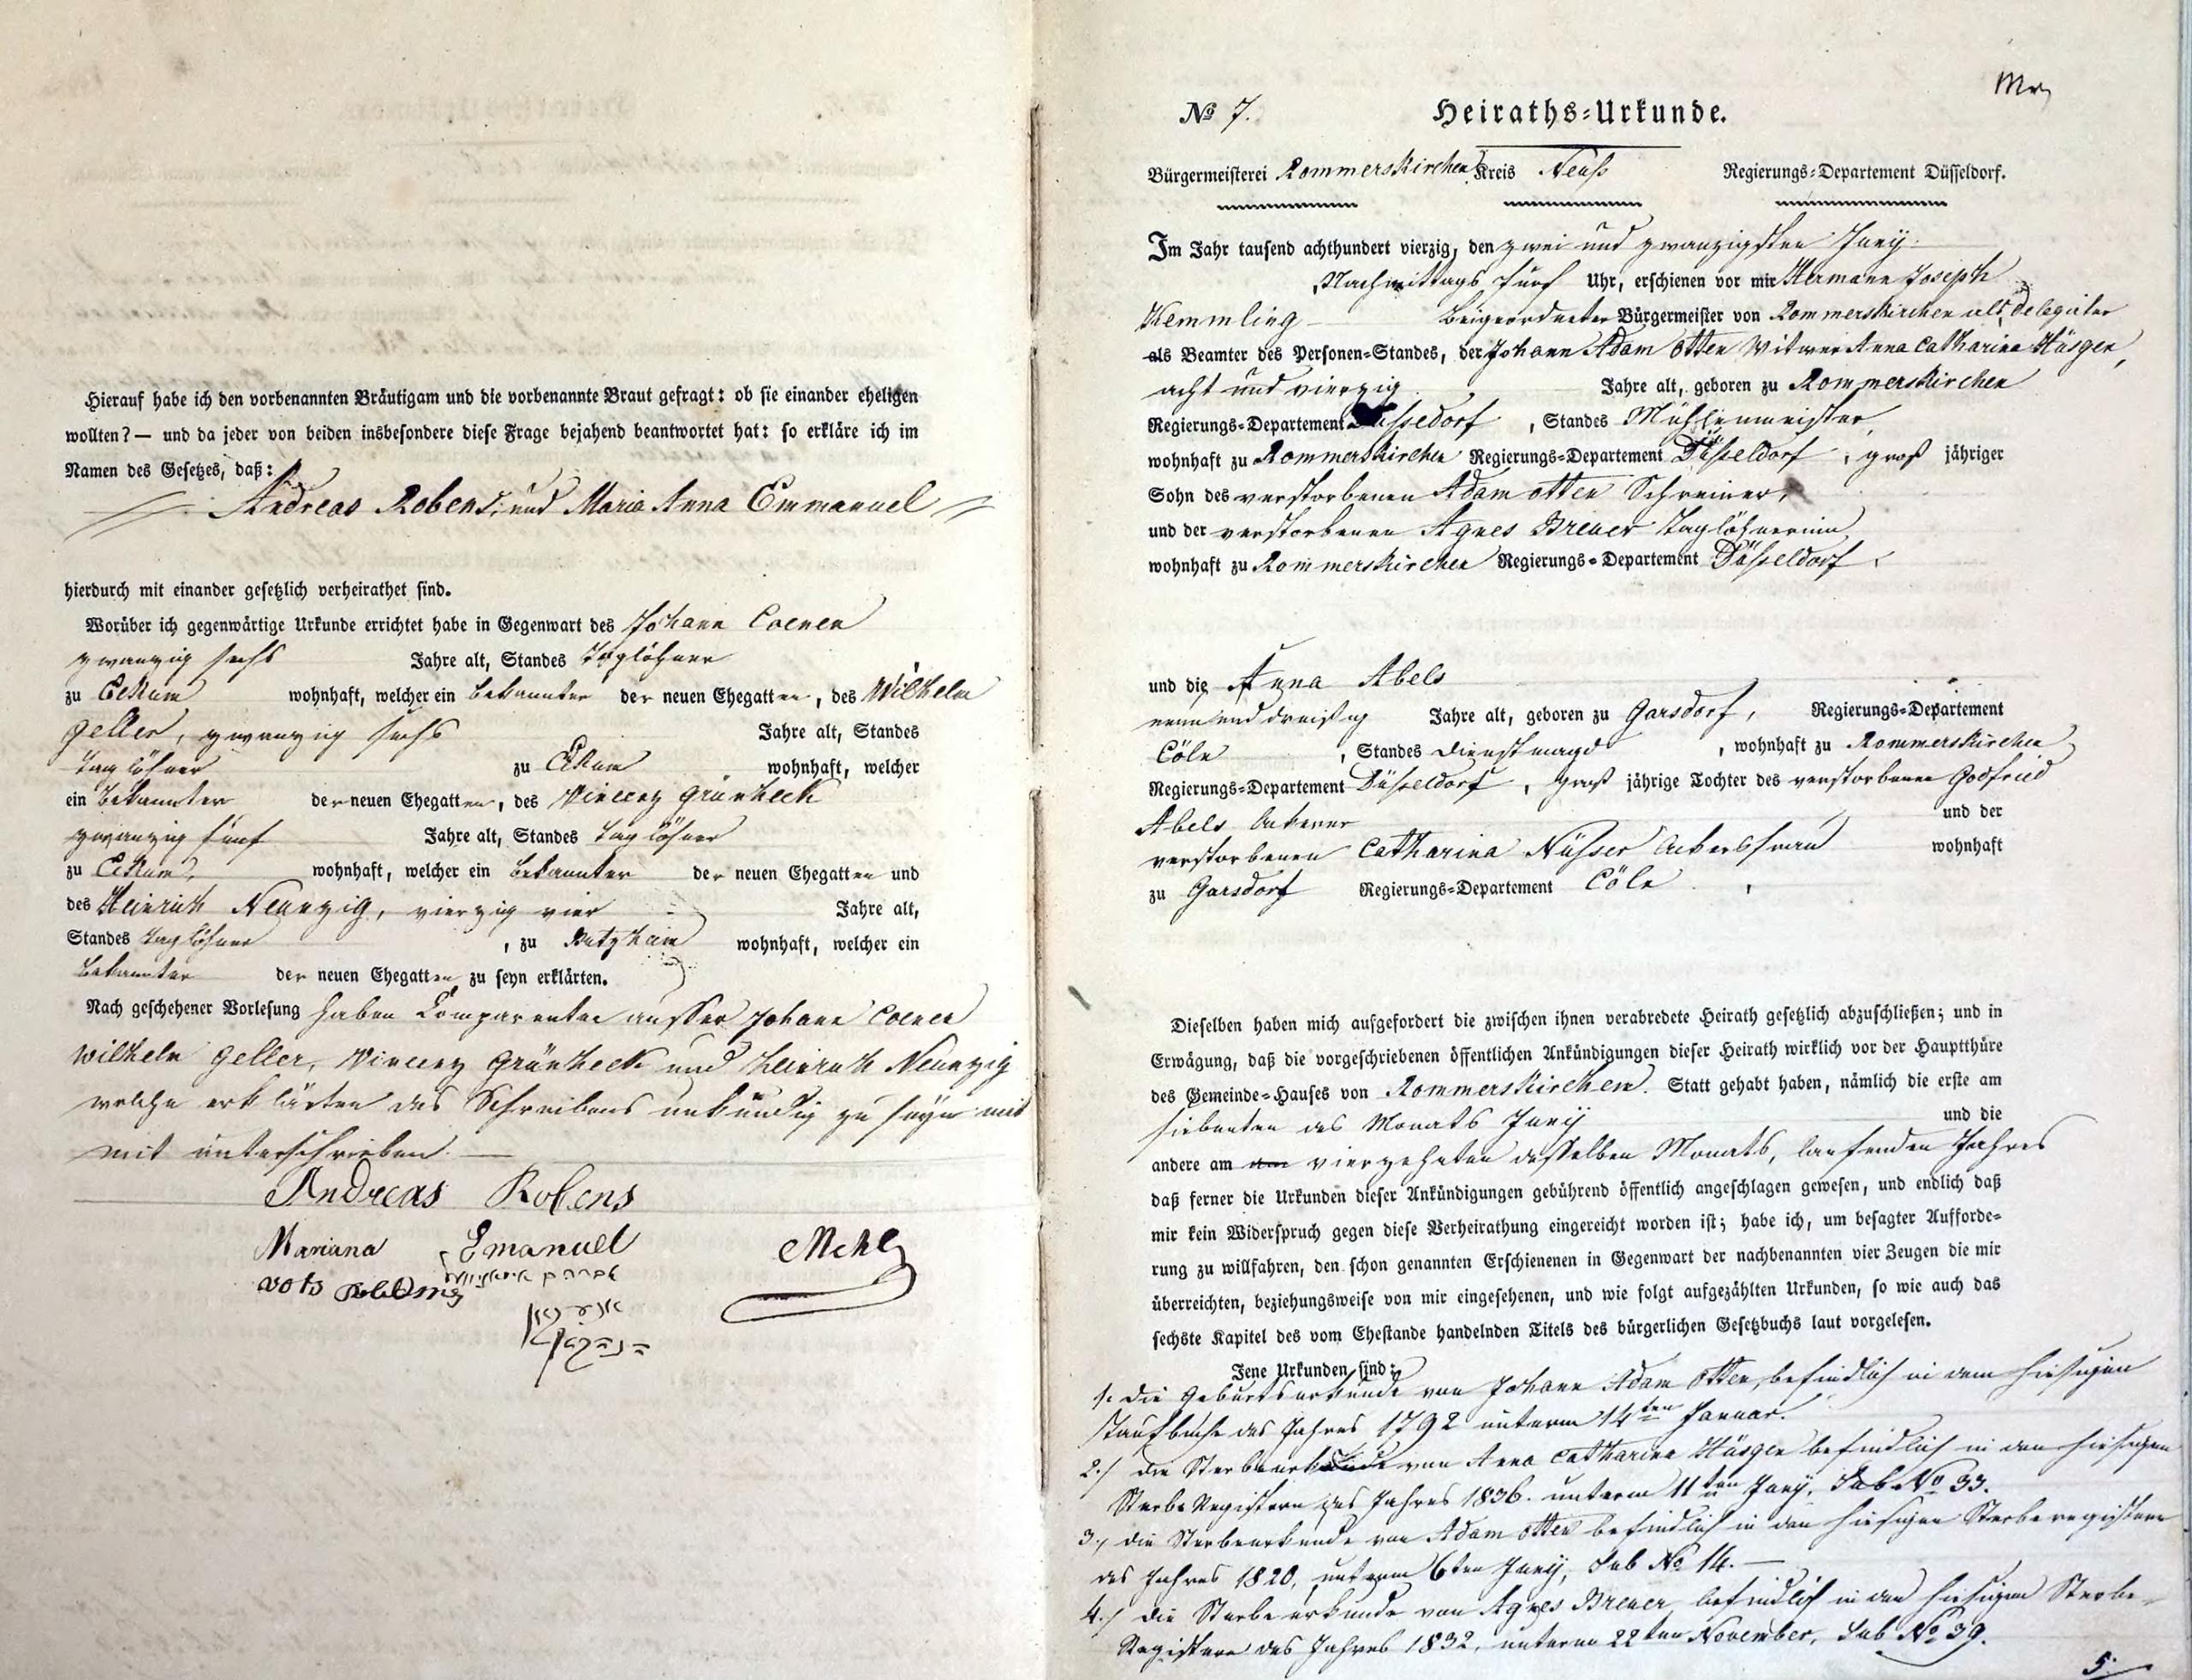 Hierauf habe ich den vorbenannten Bräutigam und die vorbenannte Braut gefragt: ob sie einander eheligen
wollten? — und da jeder von beiden insbesondere diese Frage bejahend beantwortet hat: so erkläre ich im
Namen des Gesetzes, daß:
Andreas Robens, und Maria Anna Emmanuel
hierdurch mit einander gesetzlich verheirathet sind.
Worüber ich gegenwärtige Urkunde errichtet habe in Gegenwart des Johann Coenen
zwanzig sechs Jahre alt, Standes Taglöhner
zu Eckum wohnhaft, welcher ein Bekannter der neuen Ehegatten, des Wilhelm
Geller, zwanzig sechs Jahre alt, Standes
Taglöhner zu Eckum wohnhaft, welcher
ein Bekannter der neuen Ehegatten, des Vincenz Grünheck
zwanzig fünf Jahre alt, Standes Taglöhner
zu Eckum, wohnhaft, welcher ein Bekannter der neuen Ehegatten und
des Heinrich Neunzig, vierzig vier Jahre alt,
Standes Taglöhner, zu Butzheim wohnhaft, welcher ein
Bekannter der neuen Ehegatten zu seyn erklärten.
Nach geschehener Vorlesung haben Comparenten ausser Johann Coenen
Wilhelm Geller, Vincenz Grünheck und Heinrich Neunzig
welche erklärten des Schreibens unkundig zu seyn mit
mit unterschrieben. —
Andreas Robens
Mariana Emanuel
Mehl
Mr
No 7. Heiraths-Urkunde.
Bürgermeisterei Rommerskirchen Kreis Neuß Regierungs-Departement Düsseldorf.
Im Jahr tausend achthundert vierzig, den zwei und zwanzigsten Juny
Nachmittags fünf Uhr, erschienen vor mir Hermann Joseph
Hemmling Beigeordneter Bürgermeister von Rommerskirchen als Delegirter
als Beamter des Personen-Standes, der Johann Adam Otten Witwer Anna Catharina Häsgen,
acht und vierzig Jahre alt, geboren zu Rommerskirchen
Regierungs-Departement Düsseldorf, Standes Mühlenmeister
wohnhaft zu Rommerskirchen Regierungs-Departement Düsseldorf, groß jähriger
Sohn des verstorbenen Adam Otten Schreiner,
und der verstorbenen Agnes Breuer Taglöhnerinn
wohnhaft zu Rommerskirchen Regierungs-Departement Düsseldorf.
und die Anna Abels
neun und dreißig Jahre alt, geboren zu Garsdorf, Regierungs-Departement
Cöln, Standes Dienstmagd, wohnhaft zu Rommerskirchen
Regierungs-Departement Düsseldorf, groß jährige Tochter des verstorbenen Godfried
Abels Ackerer und der
verstorbenen Catharina Nüsser Ackersfrau wohnhaft
zu Garsdorf Regierungs-Departement Cöln.
Dieselben haben mich aufgefordert die zwischen ihnen verabredete Heirath gesetzlich abzuschließen; und in
Erwägung, daß die vorgeschriebenen öffentlichen Ankündigungen dieser Heirath wirklich vor der Hauptthüre
des Gemeinde-Hauses von Rommerskirchen. Statt gehabt haben, nämlich die erste am
siebenten des Monats Juny und die
andere am vierzehnten desselben Monats, laufenden Jahres
daß ferner die Urkunden dieser Ankündigungen gebührend öffentlich angeschlagen gewesen, und endlich daß
mir kein Widerspruch gegen diese Verheirathung eingereicht worden ist; habe ich, um besagter Aufforde-
rung zu willfahren, den schon genannten Erschienenen in Gegenwart der nachbenannten vier Zeugen die mir
überreichten, beziehungsweise von mir eingesehenen, und wie folgt aufgezählten Urkunden, so wie auch das
sechste Kapitel des vom Ehestande handelnden Titels des bürgerlichen Gesetzbuchs laut vorgelesen.
Jene Urkunden sind:
1. die Geburtsurkunde von Johann Adam Otten, befindlich in dem hiesigen
Taufbuche des Jahres 1792 unterm 14ten Januar.
2./ die Sterbeurkunde von Anna Catharina Häsgen befindlich in den hiesigen
Sterbe Registern des Jahres 1836. unterm 11ten Juny, Sub No 33.
3./ die Sterbeurkunde von Adam Otten befindlich in den hiesigen Sterberegistern
des Jahres 1820, unterm 6ten Juny, Sub No 14. —
4./ die Sterbeurkunde von Agnes Breuer, befindlich in den hiesigen Sterbe-
Registern des Jahres 1832, unterm 22ten November, Sub No 39.
5./